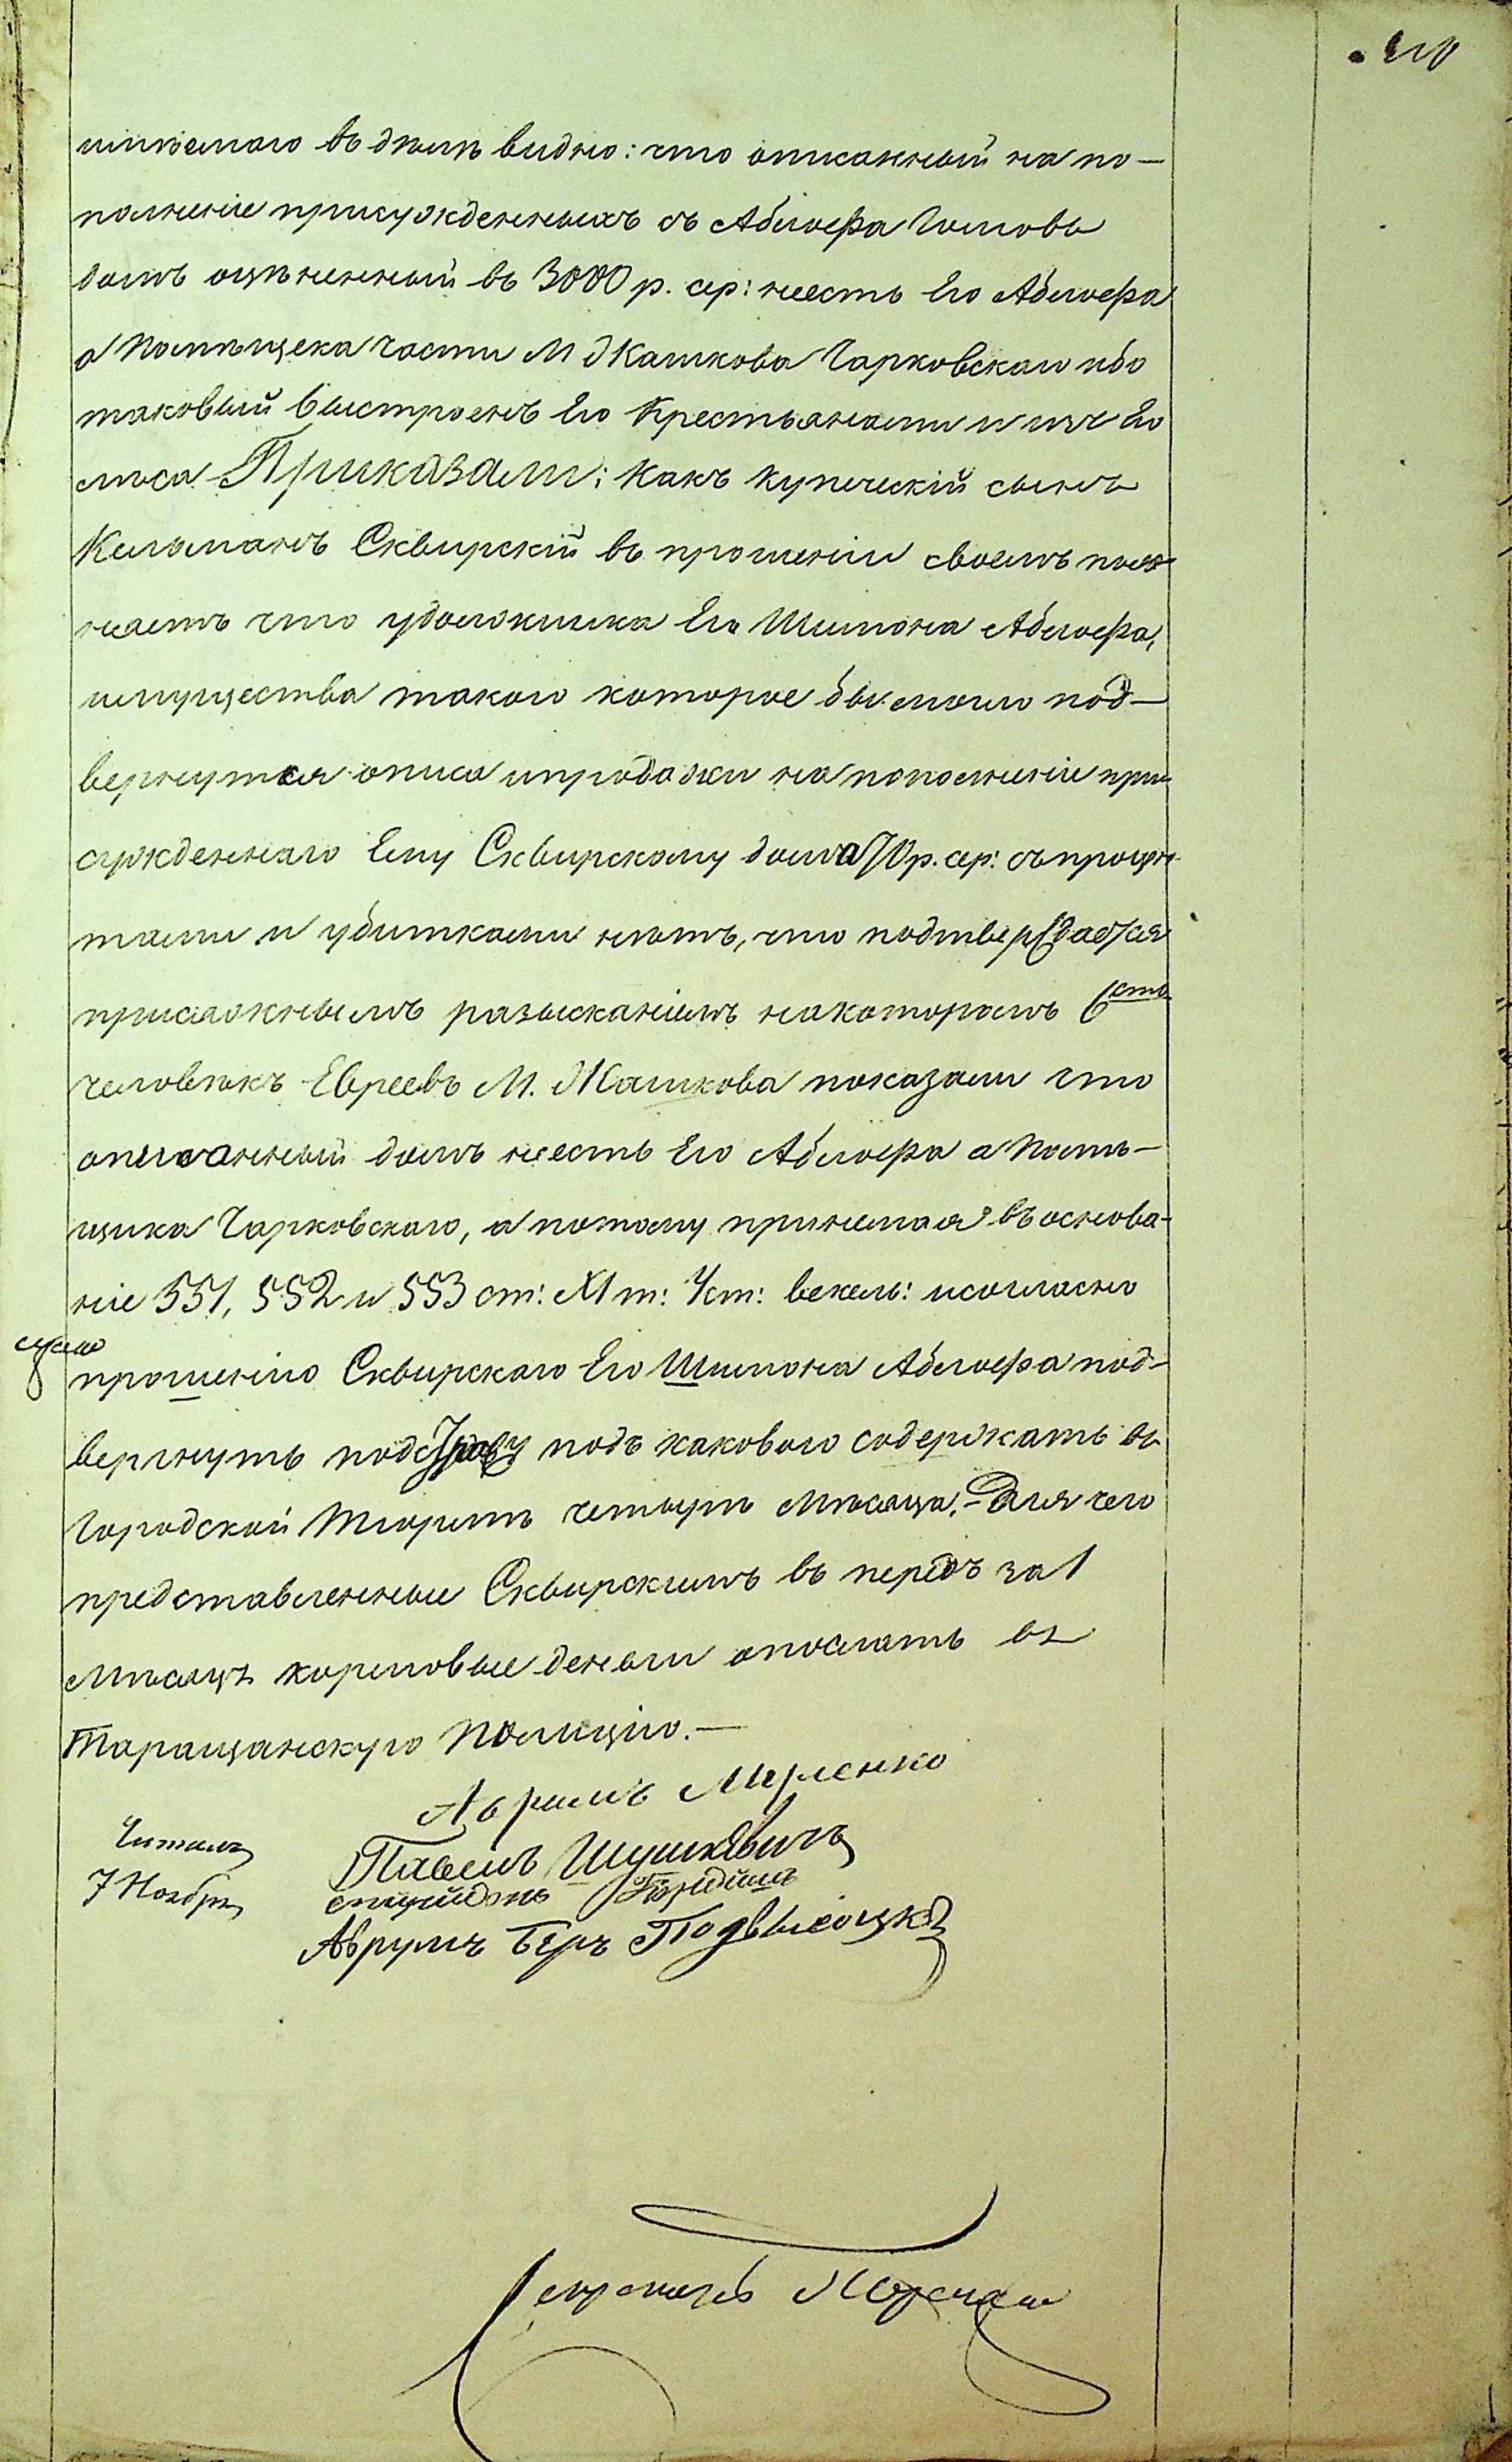 имѣемаго въ дѣлѣ видно: что описанный на по-
полненіе присужденныхъ съ Аблоефа Голговъ
домъ оцѣненный въ 3000 р. сер: неесть Его Аблоефа
а Помѣщека части М Жашкова Чарковскаго ибо
таковый выстроенъ Его Крестьянами и изъ Его
лѣса Приказали: Какъ купеческій сынъ
Кельманъ Сквирскій въ прошеніи своемъ пояс
няетъ что удолжника Его Шимона Аблоефа,
имущества такого которое бы могло под-
вергнутся описи ипродажи на пополненіе при
сужденнаго Ему Сквирскому долга 70 р. сер: съ процен
тами и убитками нѣтъ, что подтверждается
присяжнымъ разысканіемъ накоторомъ 6сть
человѣкъ Евреевъ М. Жашкова показали что
описанный домъ неесть Его Аблоефа а Помѣ-
щика Чарковскаго, а потому принемая въ основа-
ніе 551, 552 и 553 ст: XI т: Уст: вексль: исогласно
прошенію Сквирскаго Его Шимона Аблоефа под-
вергнуть подстражу подъ каковою содержать въ
Городской Тюрмѣ четыре Мѣсяца. – Для чего
представленные Сквирскимъ въ передъ за 1
Мѣсяцъ кормовые деньги отослать въ
Таращанскую Полицію. –
Павелъ Шушкѣвичъ
Читалъ
7 Ноября
Аврумъ Беръ Подвысоцкій
Секретарь